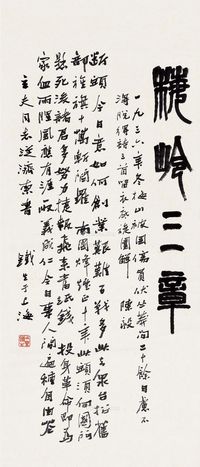 梅岭三章
一九三六年冬梅山被围伏丛莽间二十余日虑不
得脱得诗三首留衣底旋围解 陈毅
断头今日意如何创业艰难百战多此去泉台招旧
部旌旗十万斩阎罗 南国烽烟正十年此头须向国门
悬死后诸君多努力捷报飞来当纸钱 投身革命即为
家血雨腥风应有涯取义成仁今日事人间遍种自由花
立夫同志
于上海